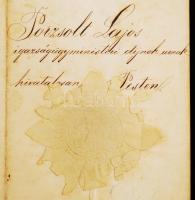 Porzsolt Lajos
igazságügyministeri dijnok urnak
hivatalosan Pesten